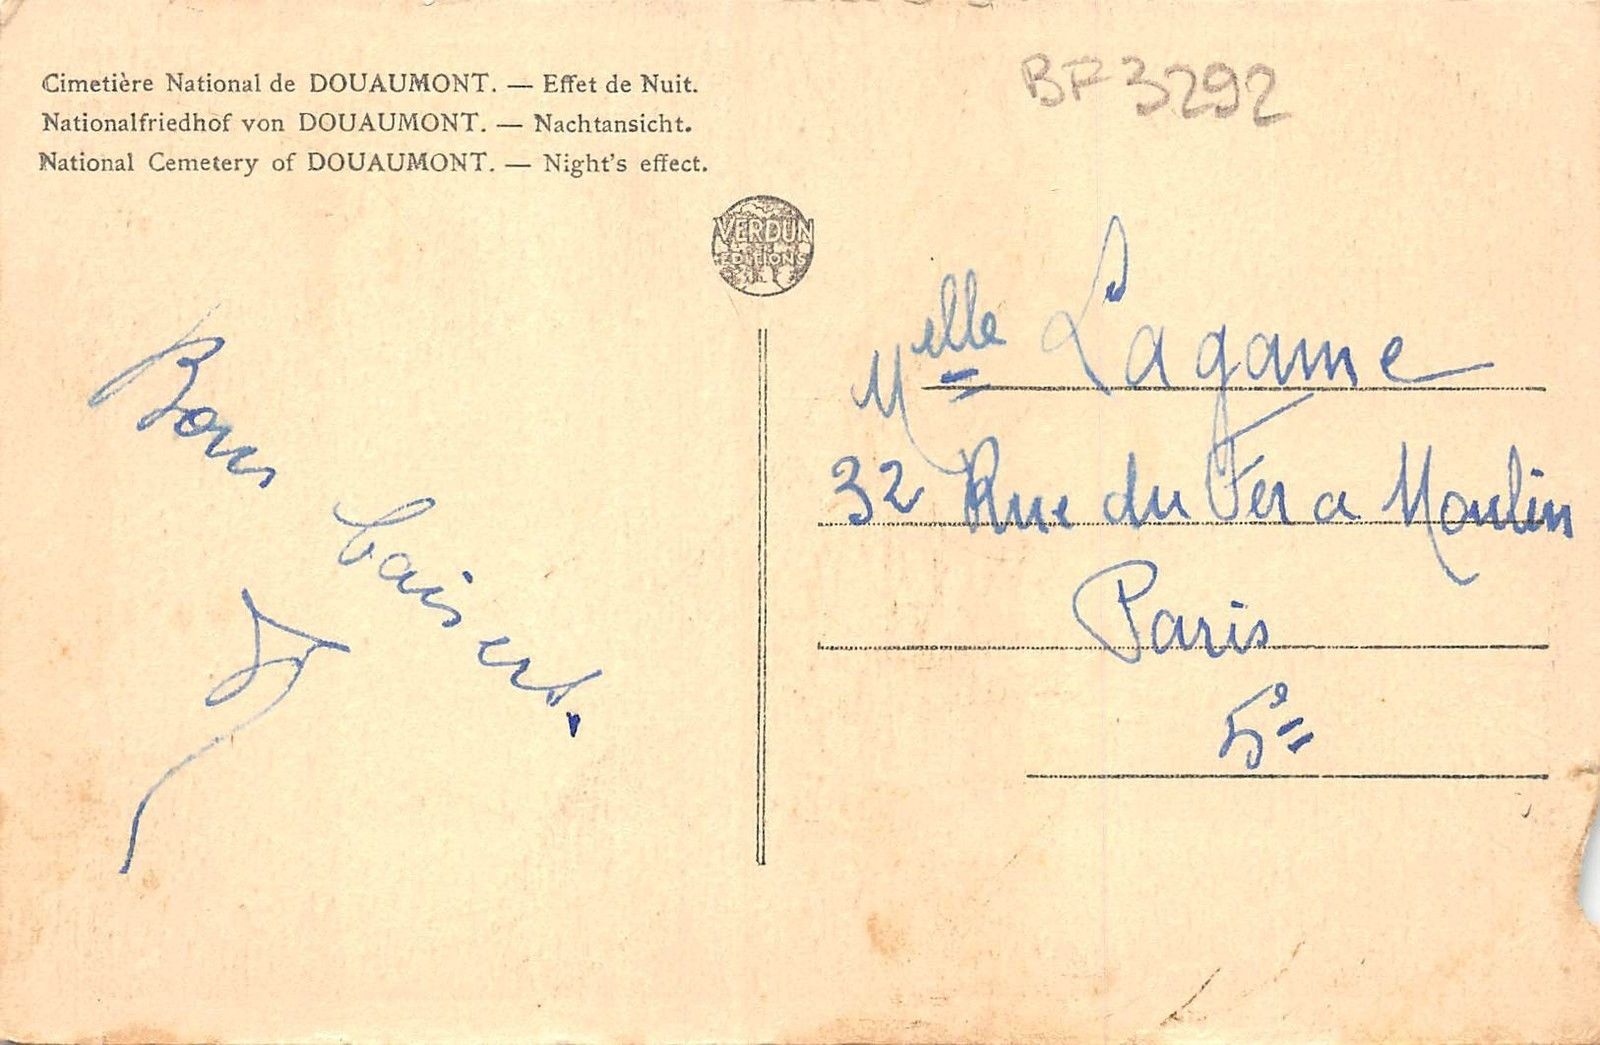 Cimetière National de DOUAUMONT. — Effet de Nuit.
Nationalfriedhof von DOUAUMONT. — Nachtansicht.
National Cemetery of DOUAUMONT. — Night's effect.
BF3292
VERDUN
EDITIONS
Bons baisers.
Melle Lagame
32 Rue du Fer a Moulin
Paris
5e